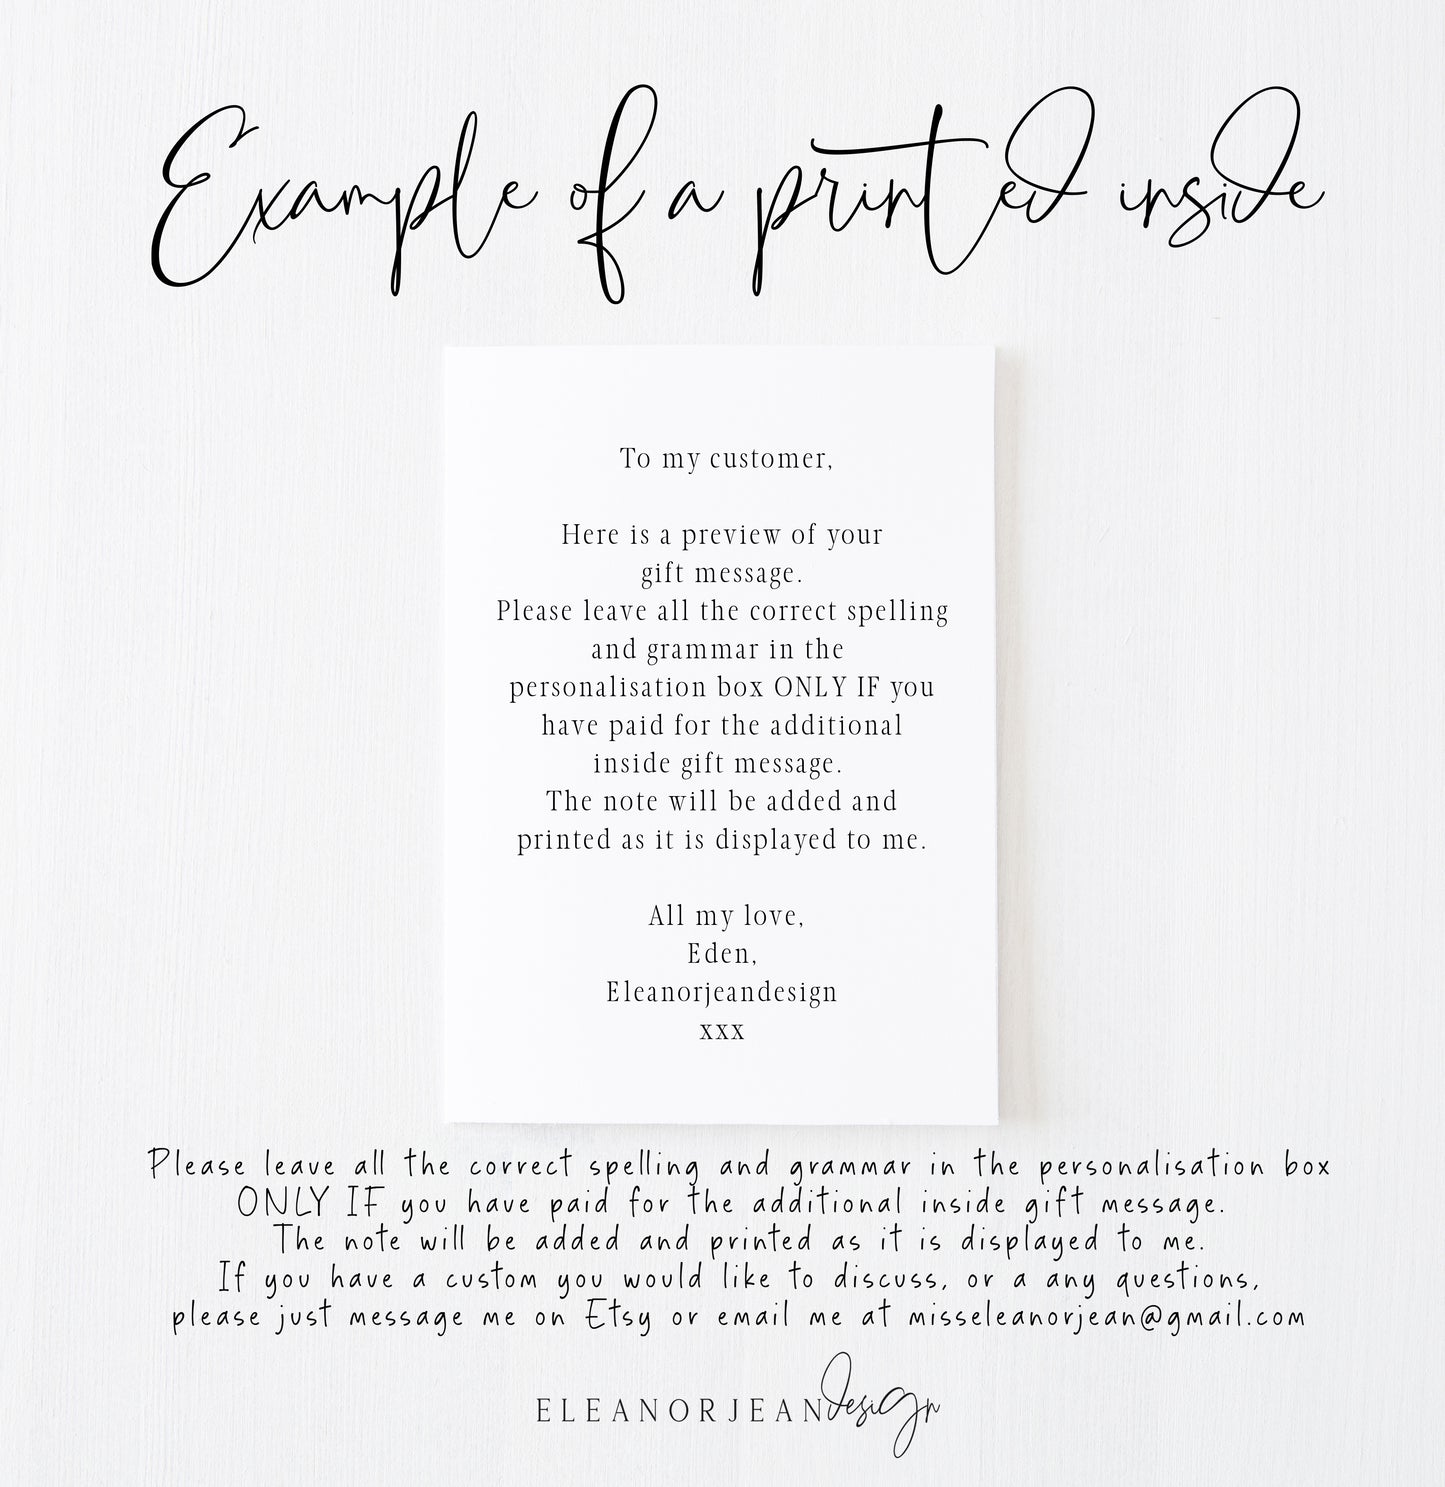 Example of a printed inside
To my customer,
Here is a preview of your
gift message.
Please leave all the correct spelling
and grammar in the
personalisation box ONLY IF you
have paid for the additional
inside gift message.
The note will be added and
printed as it is displayed to me.
All my love,
Eden,
Eleanorjeandesign
xxx
Please leave all the correct spelling and grammar in the personalisation box
ONLY IF you have paid for the additional inside gift message.
The note will be added and printed as it is displayed to me.
If you have a custom you would like to discuss, or a any questions,
please just message me on Etsy or email me at misseleanorjean@gmail.com
ELEANORJEANdesign